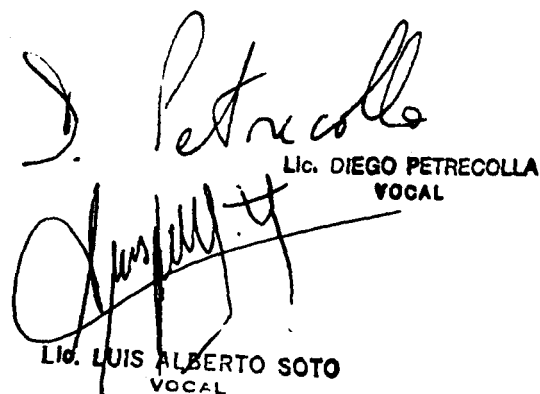 D. Petrecolla
Lic. DIEGO PETRECOLLA
VOCAL
Lic. LUIS ALBERTO SOTO
VOCAL